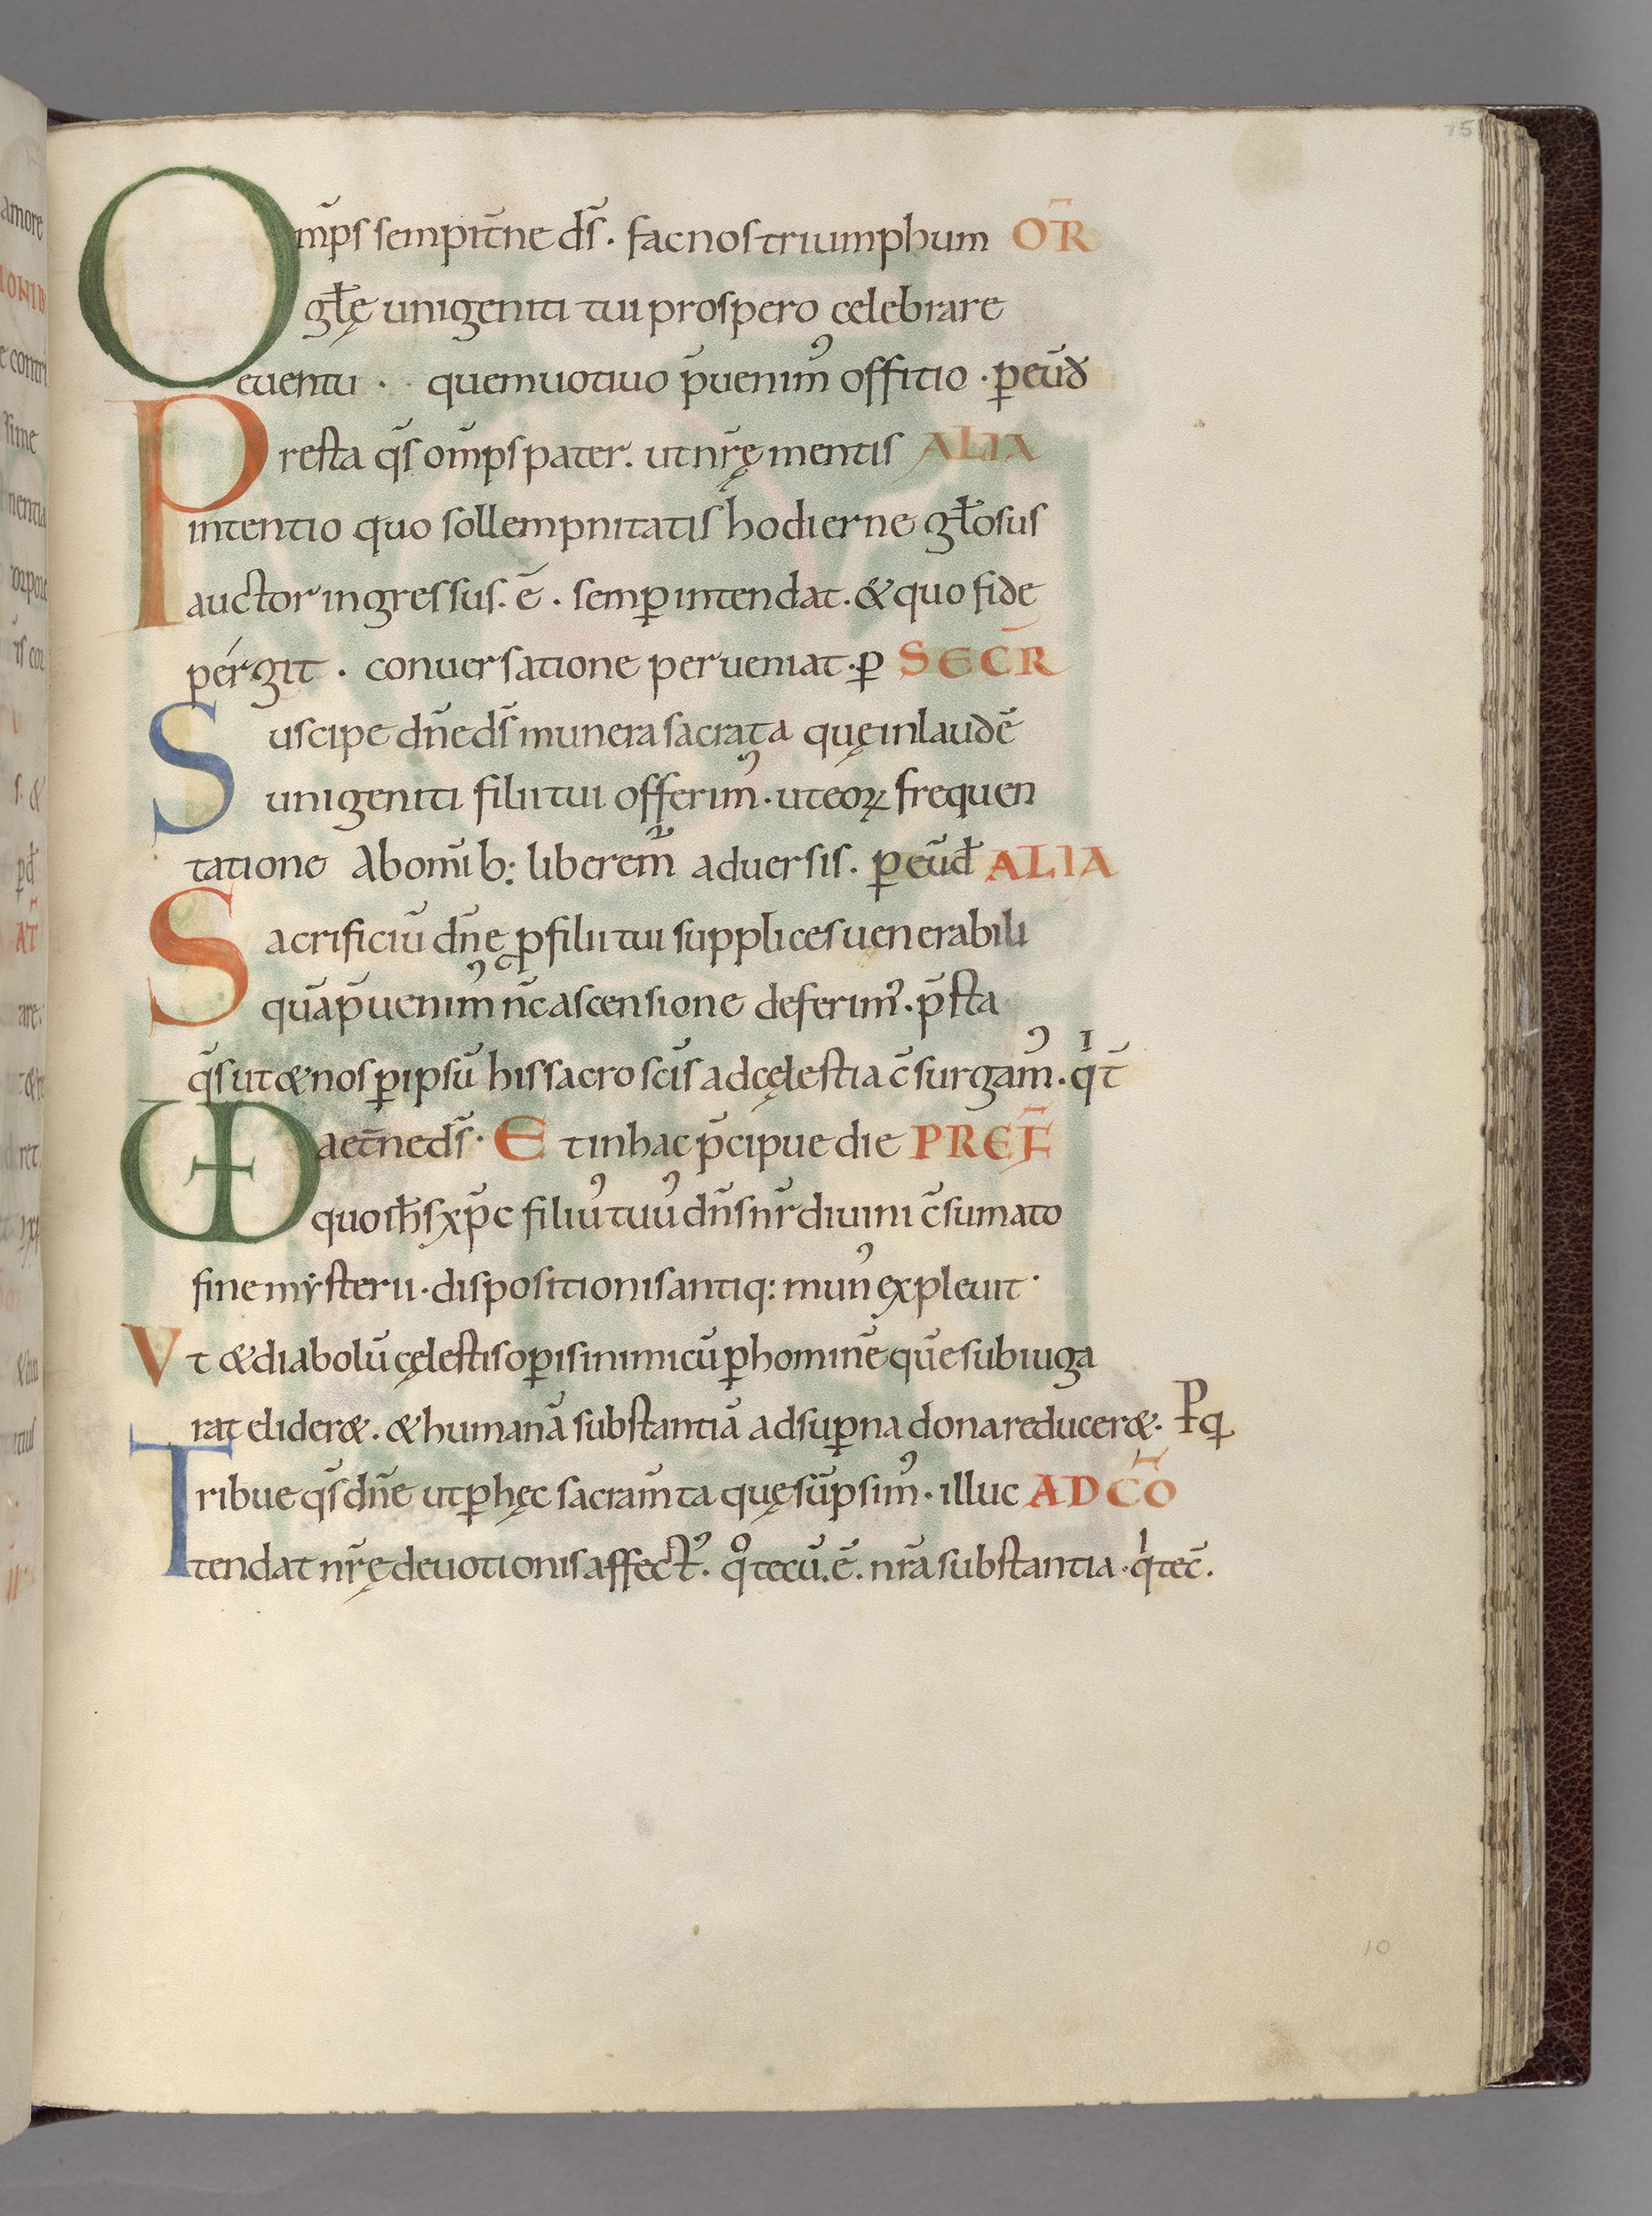 75
Om̄ps sempit̄ne ds̄ . fac nos triumphum OR̄
głę unigeniti tui prospero celebrare
euentu . quem uotiuo p̄uenim᾽ offitio . ꝑ eūd
Presta qs̄ om̄ps pater . ut nr̄ę mentis ALIA
intentio quo sollempnitatis hodierne głosus
auctor ingressus . ē . semꝑ intendat . & quo fide
pérgit . conuersatione perueniat . ꝑ SECR̄
Suscipe dn̄e ds̄ munera sacrata quę in laudē
unigeniti filii tui offerim᾽ . ut eoꝝ frequen
tatione ab om̄ib: liberem̃ aduersis . ꝑ eūd̄ ALIA
Sacrificiū dn̄e ꝓ filii tui supplices uenerabili
quā p̄uenim᾽ nc̄ ascensione deferim᾽ . p̄sta
qs̄ ut & nos ꝑ ipsū his sacroscīs ad cęlestia c̄surgam᾽ . qit̄
VD aet̄ne ds̄ . Et in hac p̄cipue die PREF̄
quo ih̄s xp̄c filiu᾽ tuu᾽ dn̄s nr̄ diuini c̄sumato
fine mẏsterii . dispositionis antiq: mun᾽ expleuit .
Vt & diabolū cęlestis oꝑis inimicū ꝑ hominē quē subiuga
rat elider& . & humanā substantiā ad suꝑna dona reducer& . P q
Tribue qs̄ dn̄e ut ꝑ hęc sacram̄ta quę sūpsim᾽ . illuc AD CŌ
tendat nr̄ę deuotionis affect᾽ . qͦ tecū . ē . nr̄a substantia . qi tec̄ .
10